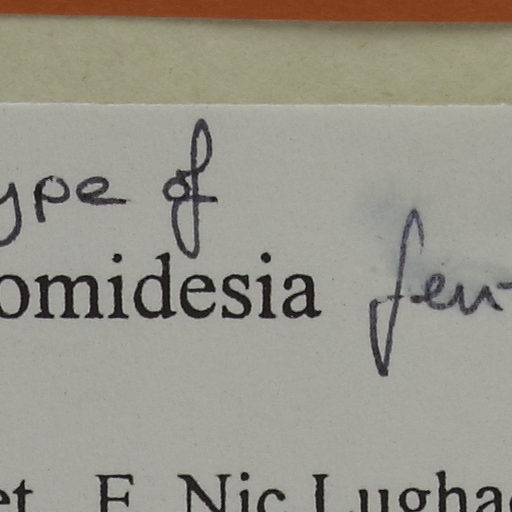 ype of
omidesia fen
et. E. Nic Lugha